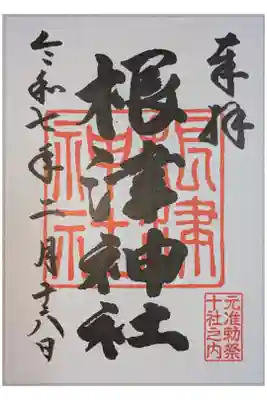 奉拝
根津神社
根津
神社
令和七年二月十六日
元准勅祭
十社之内